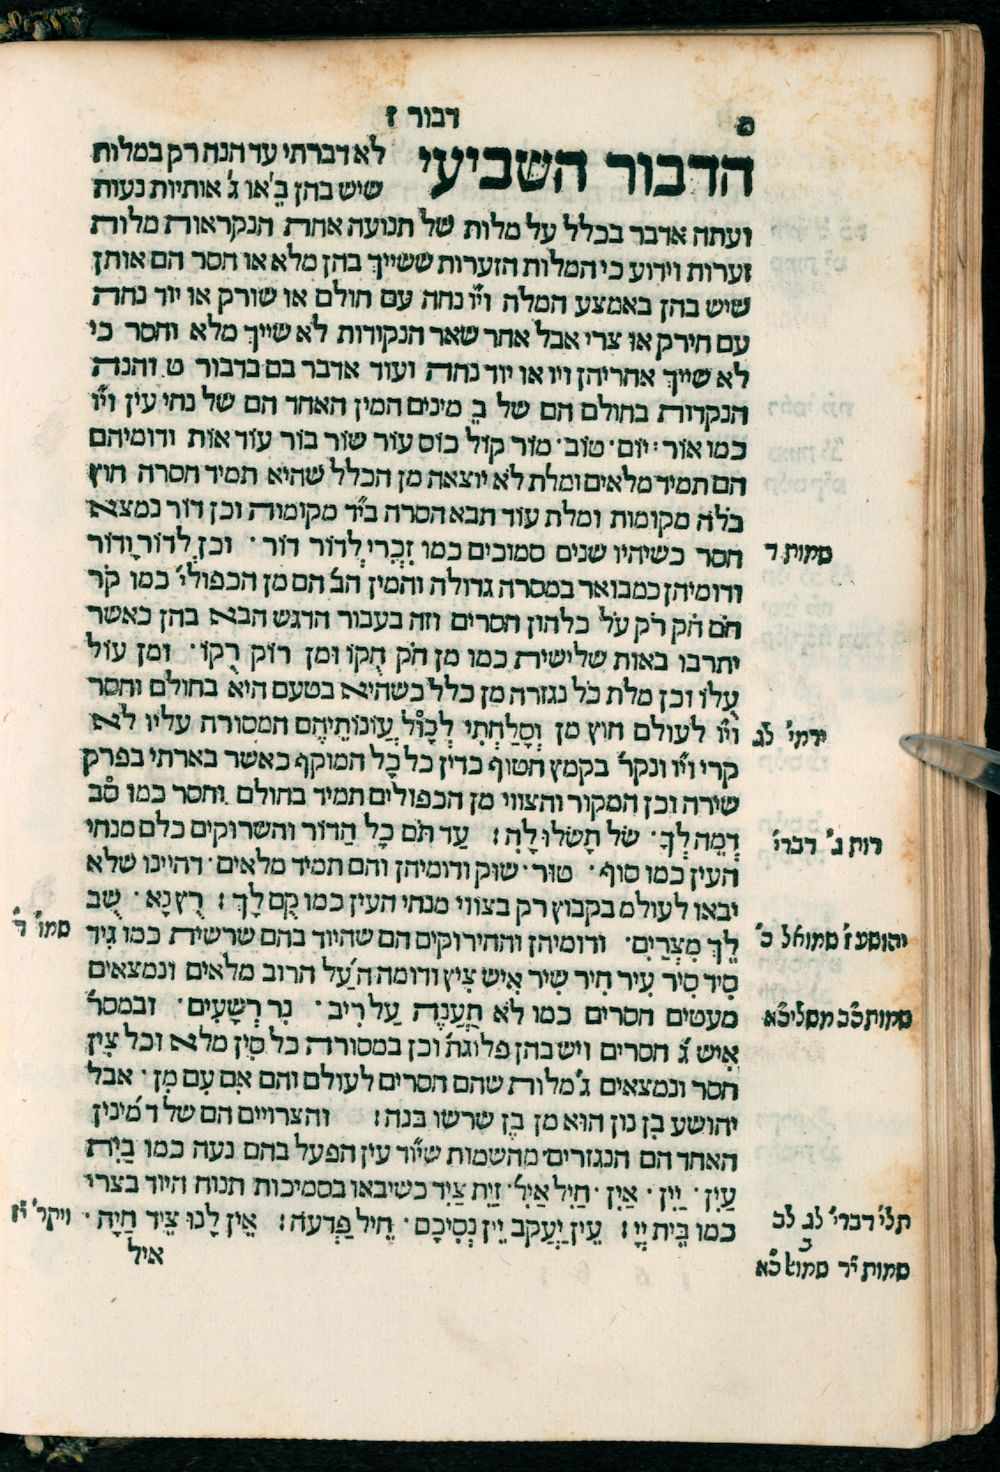 דבור ז
הדבור השביעי לא דברתי עד הנה רק במלות
שיש בהן ב̇ או ג̇ אותיות נעות
ועתה אדבר בכלל על מלות של תנועה אחת הנקראות מלות
זערות וידוע כי המלות הזערות ששייך בהן מלא או חסר הם אותן
שיש בהן באמצע המלה וי״ו נחה עם חולם או שורק או יוד נחה
עם חירק או צרי אבל אחר שאר הנקודות לא שייך מלא וחסר כי
לא שייך אחריהן ויו או יוד נחה ועוד אדבר בם בדבור ט והנה
הנקדות בחולם הם של ב מינים המין האחד הם של נחי עין וי״ו
כמו אור׃ יום· טוב· מור קול כוס עור שור בור עוד אות ודומיהם
הם תמיד מלאים ומלת לא יוצאה מן הכלל שהיא תמיד חסרה חוץ
מקומות ומלת עוד תבא חסרה בי״ד מקומות וכן דור נמצא
חסר כשיהיו שנים סמוכים כמו זִכְרִי לְדוֹר דוֹר· וכן לְדוֹר וָדוֹר
סמות ד
ודומיהן כמבואר במסרה גדולה והמין הב̇ הם מן הכפולי׳ כמו קֹר
חֹם חֹק רֹק עֹל כלהון חסרים וזה בעבור הדגש הבא בהן כאשר
יתרבו באות שלישית כמו מן חֹק חֻקוֹ ומן רוֹק רֻקוֹ· ומן עוֹל
עֻלוֹ וכן מלת כֹל נגזרה מן כלל כשהיא בטעם היא בחולם וחסר
וי״ו לעולם חוץ מן וְסָלַחְתִי לְכָוֹל עֲוֹנוֹתֵיהֶם המסורה עליו לא
ירמי׳ לג
קרי וי״ו ונקר׳ בקמץ חטוף כדין כל כָל המוקף כאשר בארתי בפרק
שירה וכן המקור והצווי מן הכפולים תמיד בחולם וחסר כמו סֹב
דְמֵה לְךָ· שֹׁל תָשֹלוּ לָהּ׃ עַד תֹּם כָל הַדוֹר והשרוקים כלם מנחי
רות ג׳ דברי׳
העין כמו סוף· טור· שוק ודומיהן והם תמיד מלאים· דהיינו שלא
יבאו לעולם בקבוץ רק בצווי מנחי העין כמו קֻם לָךְ׃ רֻץ נָא· שֻׁב
לֵךְ מִצְרַיִם· ודומיהן והחירוקים הם שהיוד בהם שרשית כמו גיד
יהושע ז׳ סמואל כ׳
סמו׳ ד׳
סיד סיר עיר חיר שיר איש ציץ ודומה ה׳ על הרוב מלאים ונמצאים
מעטים חסרים כמו לא תַעֲנֶה עַל רִיב· נִר רְשָׁעִים· ובמסר׳
סמות כ״ג מסלי כ״א
איש ג׳ חסרים ויש בהן פלוגת׳ וכן במסורה כל סִין מלא וכל צִין
חסר ונמצאים ג׳ מלות שהם חסרים לעולם והם אִם עִם מִן· אבל
יהושע בִן נון הוא מן בֶן שרשו בנה׃ והצרויים הם של ד׳ מינין
האחד הם הנגזרים מהשמות שיו״ד עין הפעל בהם נעה כמו בַיִת
עַיִן· יַיִן· אַיִן· חַיִל אַיִל· זַיִת צַיִד כשיבאו בסמיכות תנוח היוד בצרי
כמו בֵּית יְיָ׃ עֵין יַעֲקֹב יֵין נְסִיכָם· חֵיל פַּדְעָה׃ אֵין לָנוּ צֵיד חַיָה·
תלי׳ דברי׳ לג לב
ויקר׳ י״ז
איל
סמות י״ד סמוא׳ כ״א